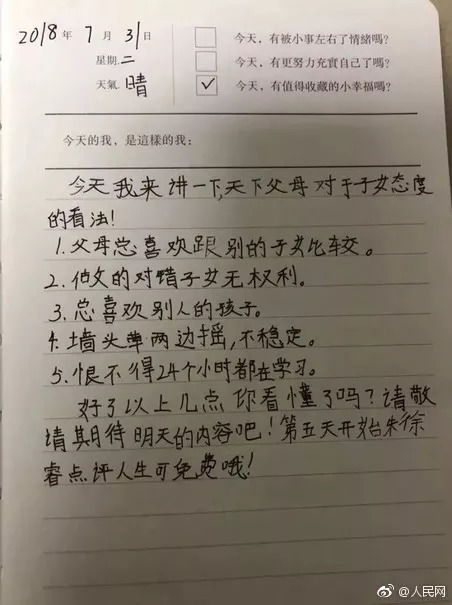 2018年 7月 31日
星期 二
天氣 晴
今天，有被小事左右了情緒嗎?
今天，有更努力充實自己了嗎?
✓ 今天，有值得收藏的小幸福嗎?
今天的我，是這樣的我：
今天我来讲一下,天下父母对于子女态度
的看法!
1.父母总喜欢跟别的子女比较。
2.做的对错子女无权利。
3.总喜欢别人的孩子。
4.墙头草两边摇,不稳定。
5.恨不得24个小时都在学习。
好了以上几点你看懂了吗?请敬
请其期待明天的内容吧!第五天开始朱徐
睿点评人生可免费哦!
@人民网